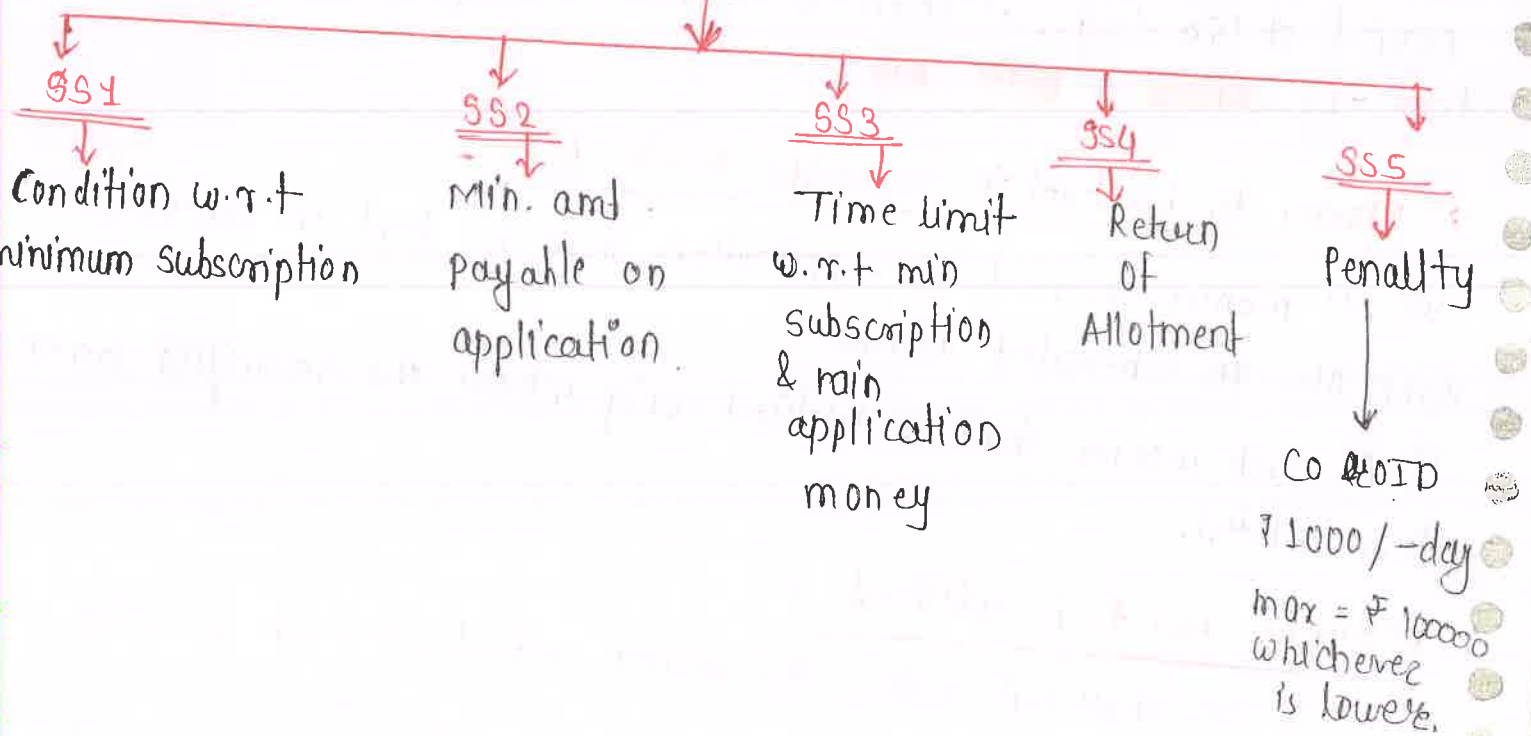 SS1
Condition w.r.t
minimum subscription
SS2
Min. amt.
payable on
application.
SS3
Time limit
w.r.t min
subscription
& min
application
money
SS4
Return
of
Allotment
SS5
Penallty
Co OID
₹1000/-day
max = ₹ 100000
whichever
is lower.